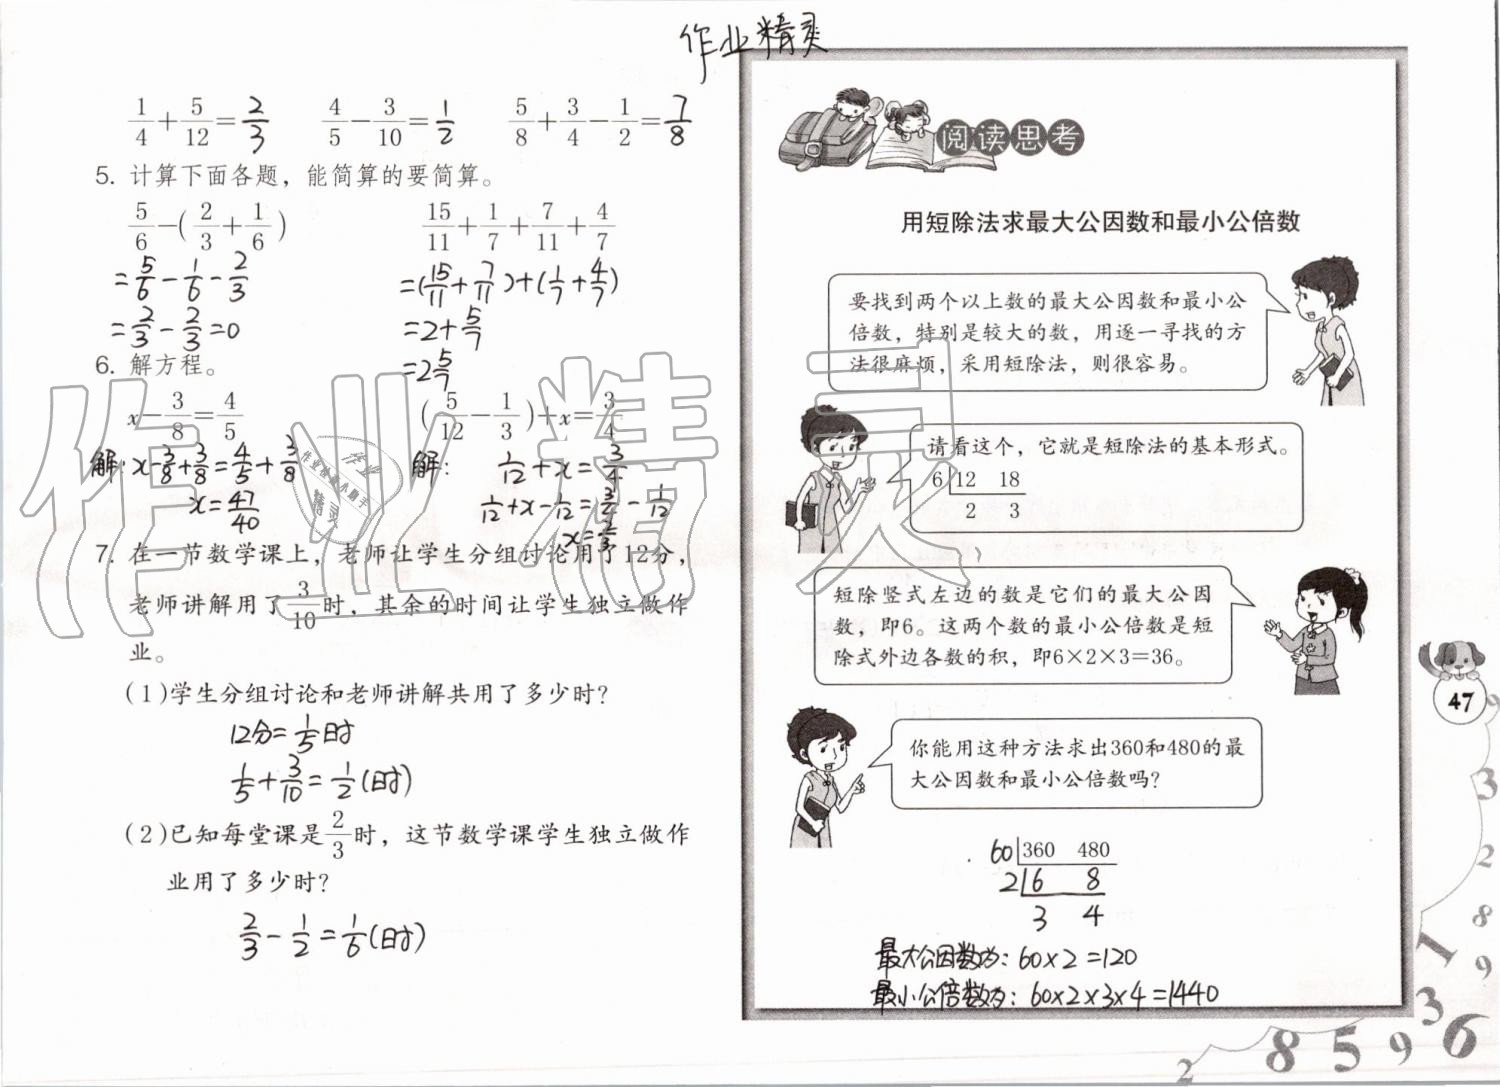 作业精灵
1/4+5/12=2/3 4/5-3/10=1/2 5/8+3/4-1/2=7/8
5. 计算下面各题，能简算的要简算。
5/6-(2/3+1/6) 15/11+1/7+7/11+4/7
=5/6-1/6-2/3 =(15/11+7/11)+(1/7+4/7)
=2/3-2/3=0 =2+5/7
6. 解方程。 =2 5/7
x-3/8=4/5 (5/12-1/3)+x=3/4
解:x-3/8+3/8=4/5+3/8 解: 1/12+x=3/4
x=47/40 1/12+x-1/12=3/4-1/12
x=2/3
7. 在一节数学课上，老师让学生分组讨论用了12分，
老师讲解用了3/10时，其余的时间让学生独立做作
业。
(1)学生分组讨论和老师讲解共用了多少时?
12分=1/5时
1/5+3/10=1/2(时)
(2)已知每堂课是2/3时，这节数学课学生独立做作
业用了多少时?
2/3-1/2=1/6(时)
阅读思考
用短除法求最大公因数和最小公倍数
要找到两个以上数的最大公因数和最小公
倍数，特别是较大的数，用逐一寻找的方
法很麻烦，采用短除法，则很容易。
请看这个，它就是短除法的基本形式。
6 12 18
2 3
短除竖式左边的数是它们的最大公因
数，即6。这两个数的最小公倍数是短
除式外边各数的积，即6×2×3=36。
你能用这种方法求出360和480的最
大公因数和最小公倍数吗?
60 360 480
2 6 8
3 4
最大公因数为：60×2=120
最小公倍数为：60×2×3×4=1440
47
作业精灵
作业
作业检查小助手
精灵
9
3
2
8
1
9
3
6
2
8
5
9